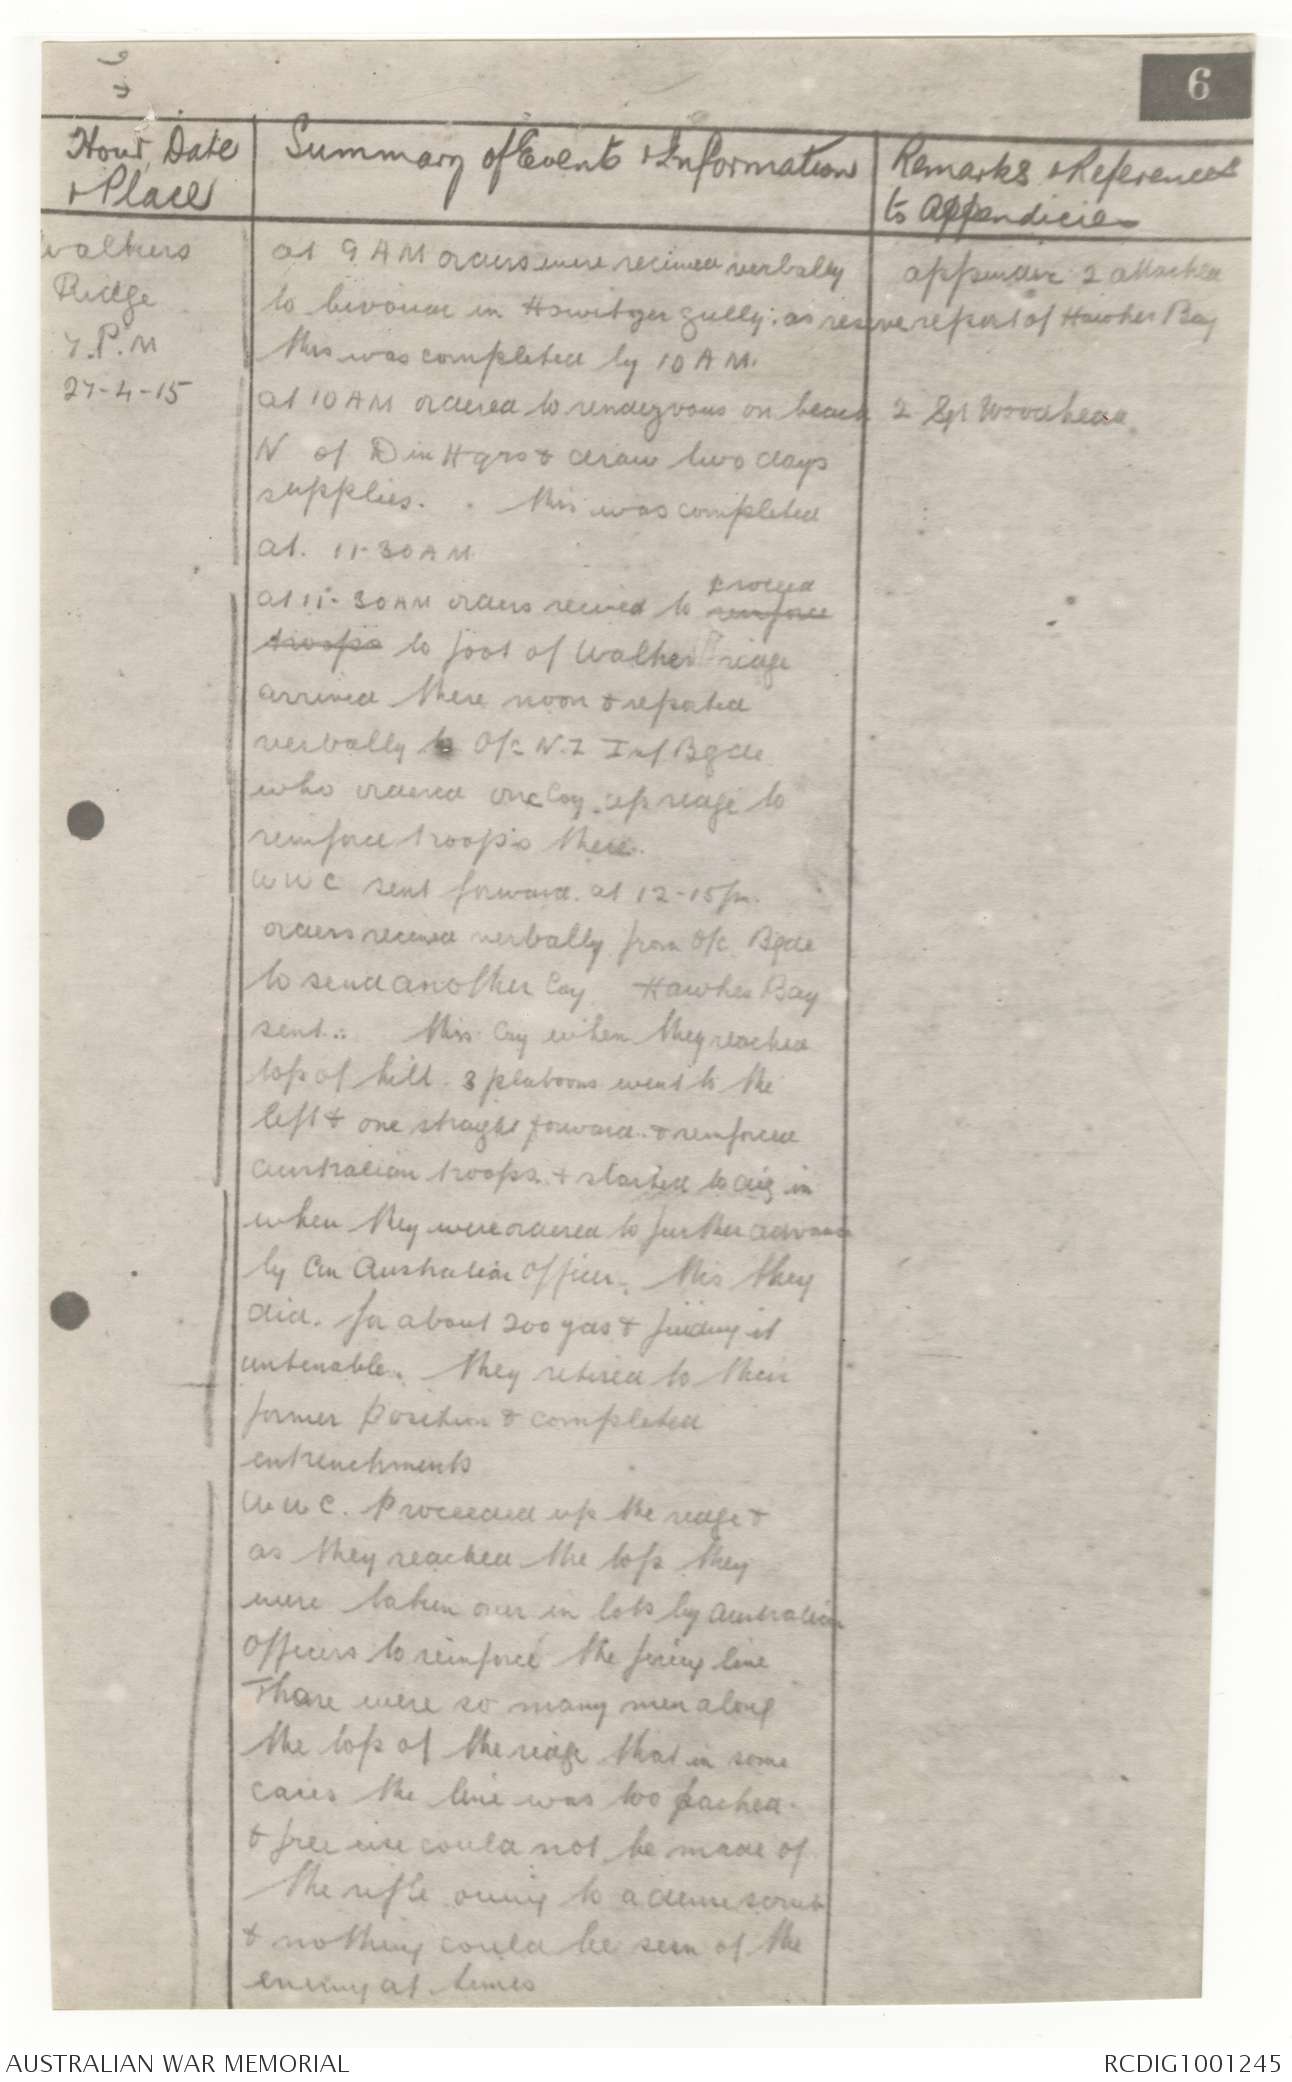 6
Hour, Date & Place
Summary of Events & Information
Remarks & References to Appendicies
Walkers
Ridge
7.P.M
27-4-15
at 9 AM orders were recieved verbally
to bivouac in Howitzer gully: as reserve
this was completed by 10 AM.
at 10 AM ordered to rendezvous on beach
N of Div Hqrs & draw two days
supplies. . this was completed
at. 11-30 AM
at 11-30 AM orders recieved to reinforce proceed
troops to foot of Walkers ridge
arrived there noon & reported
verbally to O/c N.Z Inf Bgde
who ordered one Coy up ridge to
reinforce troops there.
WWC sent forward. at 12-15 pm.
orders recieved verbally from O/c Bgde
to send another Coy Hawkes Bay
sent.. this Coy when they reached
top of hill 3 platoons went to the
left & one straight forward. & reinforced
australian troops. & started to dig in
when they were ordered to further advance
by an Australian Officer. this they
did. for about 200 yds & finding it
untenable. they retired to their
former position & completed
entrenchments
WWC. Proceeded up the ridge &
as they reached the top they
were taken over in lots by Australian
Officers to reinforce the firing line
Thare were so many men along
the top of the ridge that in some
cases the line was too packed.
& free use could not be made of
the rifle owing to a dense scrub
& nothing could be seen of the
enemy at times
appendix 2 attached
report of Hawkes Bay
2 Sgt Woodhead.
AUSTRALIAN WAR MEMORIAL
RCDIG1001245